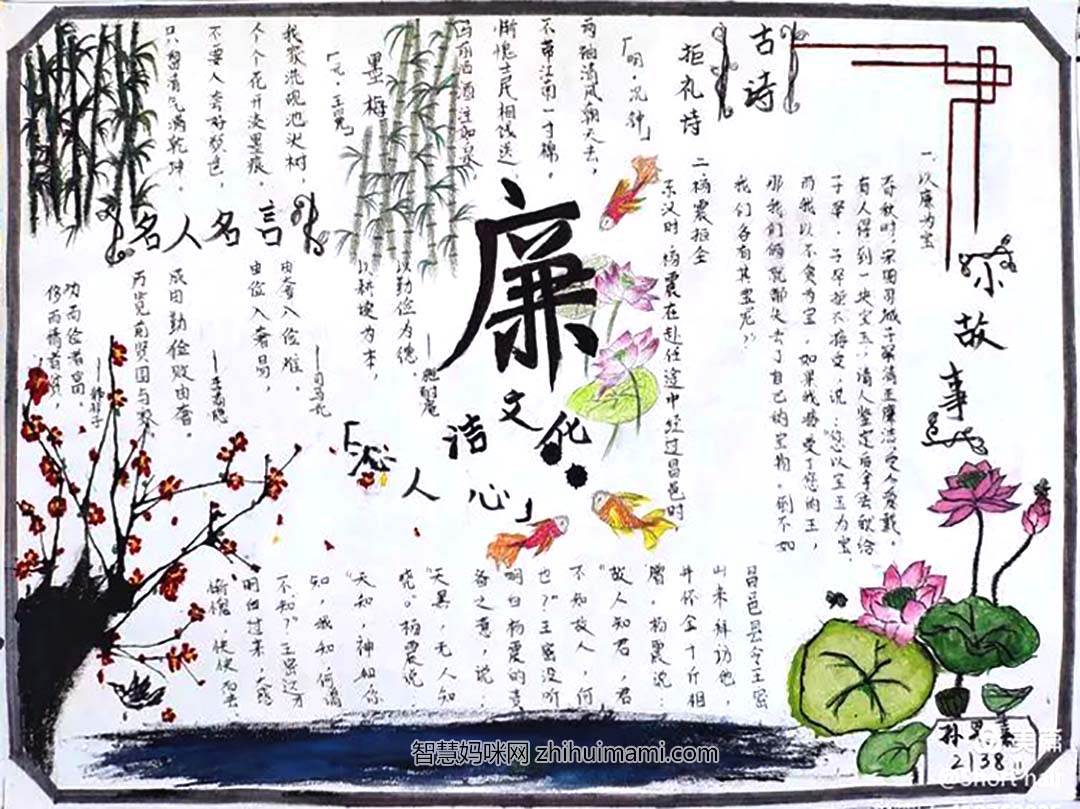 古诗
拒礼诗
「明·况钟」
两袖清风朝天去，
不带江南一寸棉，
惭愧士民相饯送，
马前洒酒注如泉
墨梅
「元·王冕」
我家洗砚池头树，
个个花开淡墨痕。
不要人夸好颜色，
只留清气满乾坤。
小故事
一 以廉为宝
春秋时，宋国司城子罕清正廉洁，受人爱戴。
有人得到一块宝玉，请人鉴定后拿去献给
子罕，子罕拒不接受，说：“您以宝玉为宝
而我以不贪为宝，如果我接受了您的玉，
那我们俩就都失去了自己的宝物。倒不如
我们各有其宝呢”
二 杨震拒金
东汉时 杨震在赴任途中经过昌邑时
昌邑县令王密
来拜访他，
并怀金十斤相
赠，杨震说：
“故人知君，君
不知故人，何
也？”王密没听
明白杨震的责
备之意，说：
“天黑，无人知
晓。”杨震说：
“天知，神知你
知，我知何谓
不知？”王密这才
明白过来，大感
惭愧，怏怏而去
廉
洁文化
「沁人心」
名人名言
以勤俭为德
以耕读为本，
——施耐庵
由奢入俭难。
由俭入奢易，
——司马光
成由勤俭败由奢。
历览前贤国与家
——李商隐
力而俭者富。
侈而惰者贫，
——韩非子
2138
智慧妈咪网 zhihuimami.com